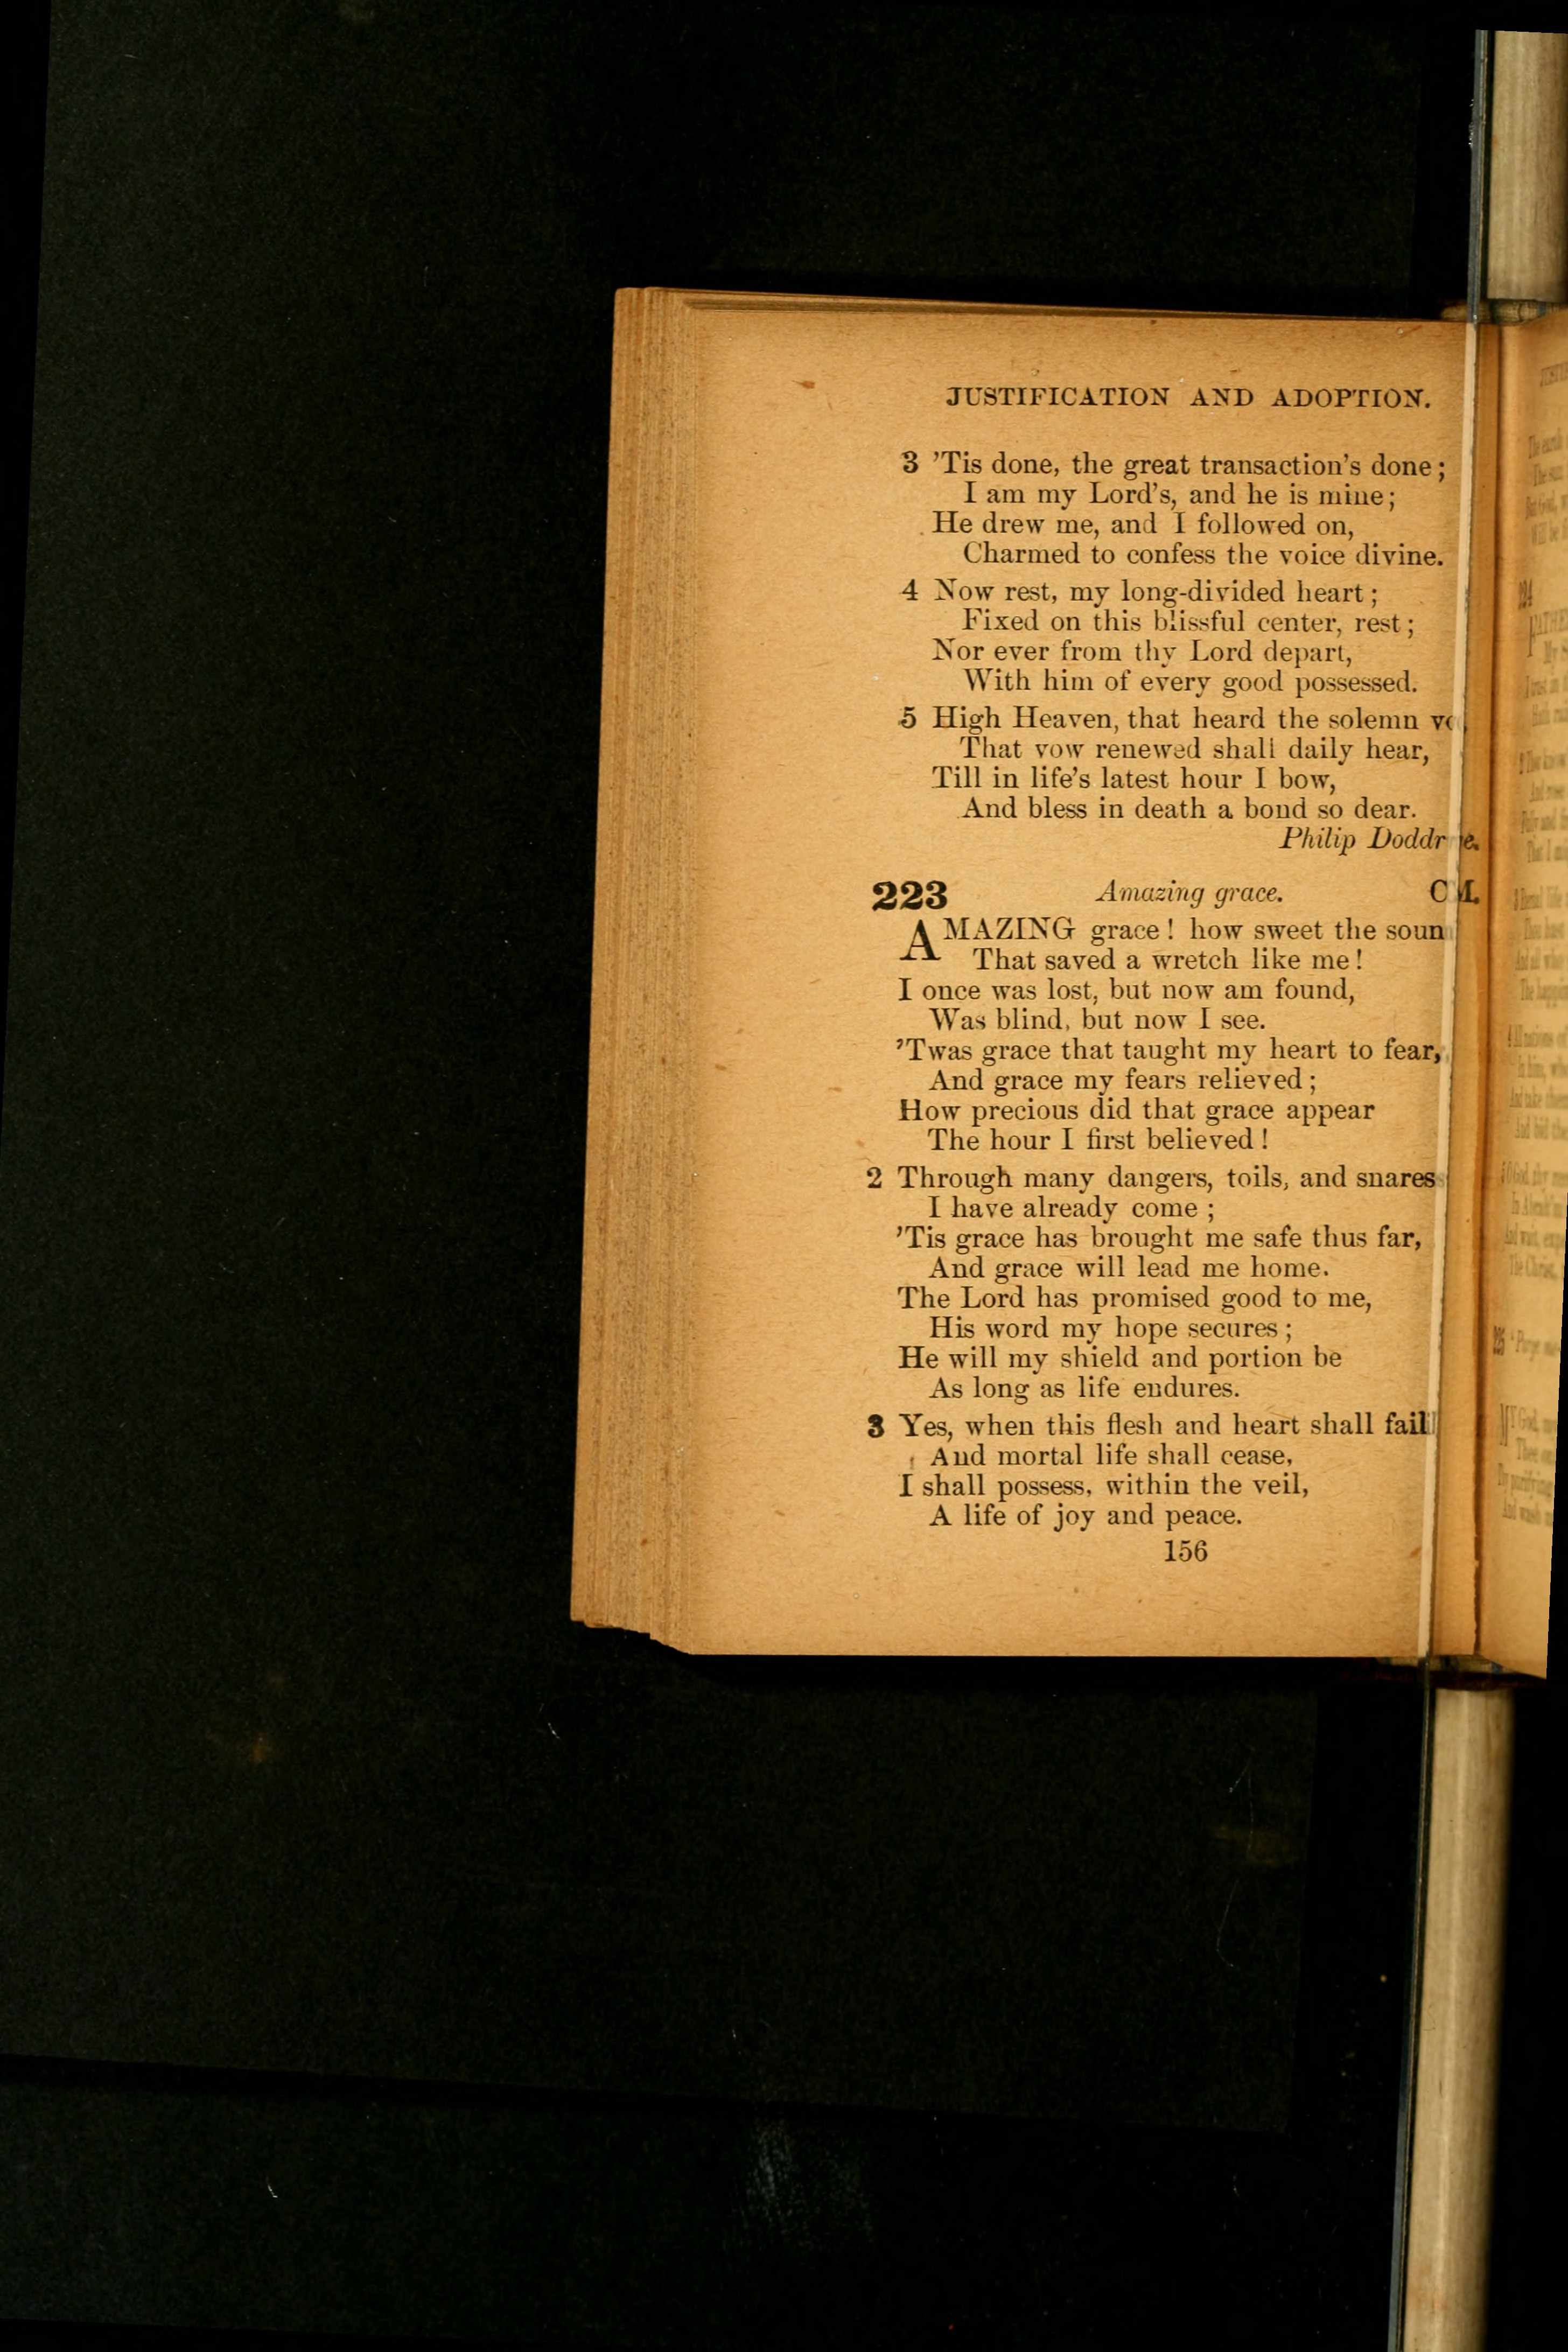 JUSTIFICATION AND ADOPTION.
3 'Tis done, the great transaction's done;
I am my Lord's, and he is mine;
He drew me, and I followed on,
Charmed to confess the voice divine.
4 Now rest, my long-divided heart;
Fixed on this blissful center, rest;
Nor ever from thy Lord depart,
With him of every good possessed.
5 High Heaven, that heard the solemn
That vow renewed shall daily hear,
Till in life's latest hour I bow,
And bless in death a bond so dear.
Philip
223 Amazing grace. C M.
AMAZING grace! how sweet the soun
That saved a wretch like me!
I once was lost, but now am found,
Was blind, but now I see.
'Twas grace that taught my heart to fear,
And grace my fears relieved;
How precious did that grace appear
The hour I first believed!
2 Through many dangers, toils, and snares
I have already come;
'Tis grace has brought me safe thus far,
And grace will lead me home.
The Lord has promised good to me,
His word my hope secures;
He will my shield and portion be
As long as life endures.
3 Yes, when this flesh and heart shall fail
And mortal life shall cease,
I shall possess, within the veil,
A life of joy and peace.
156